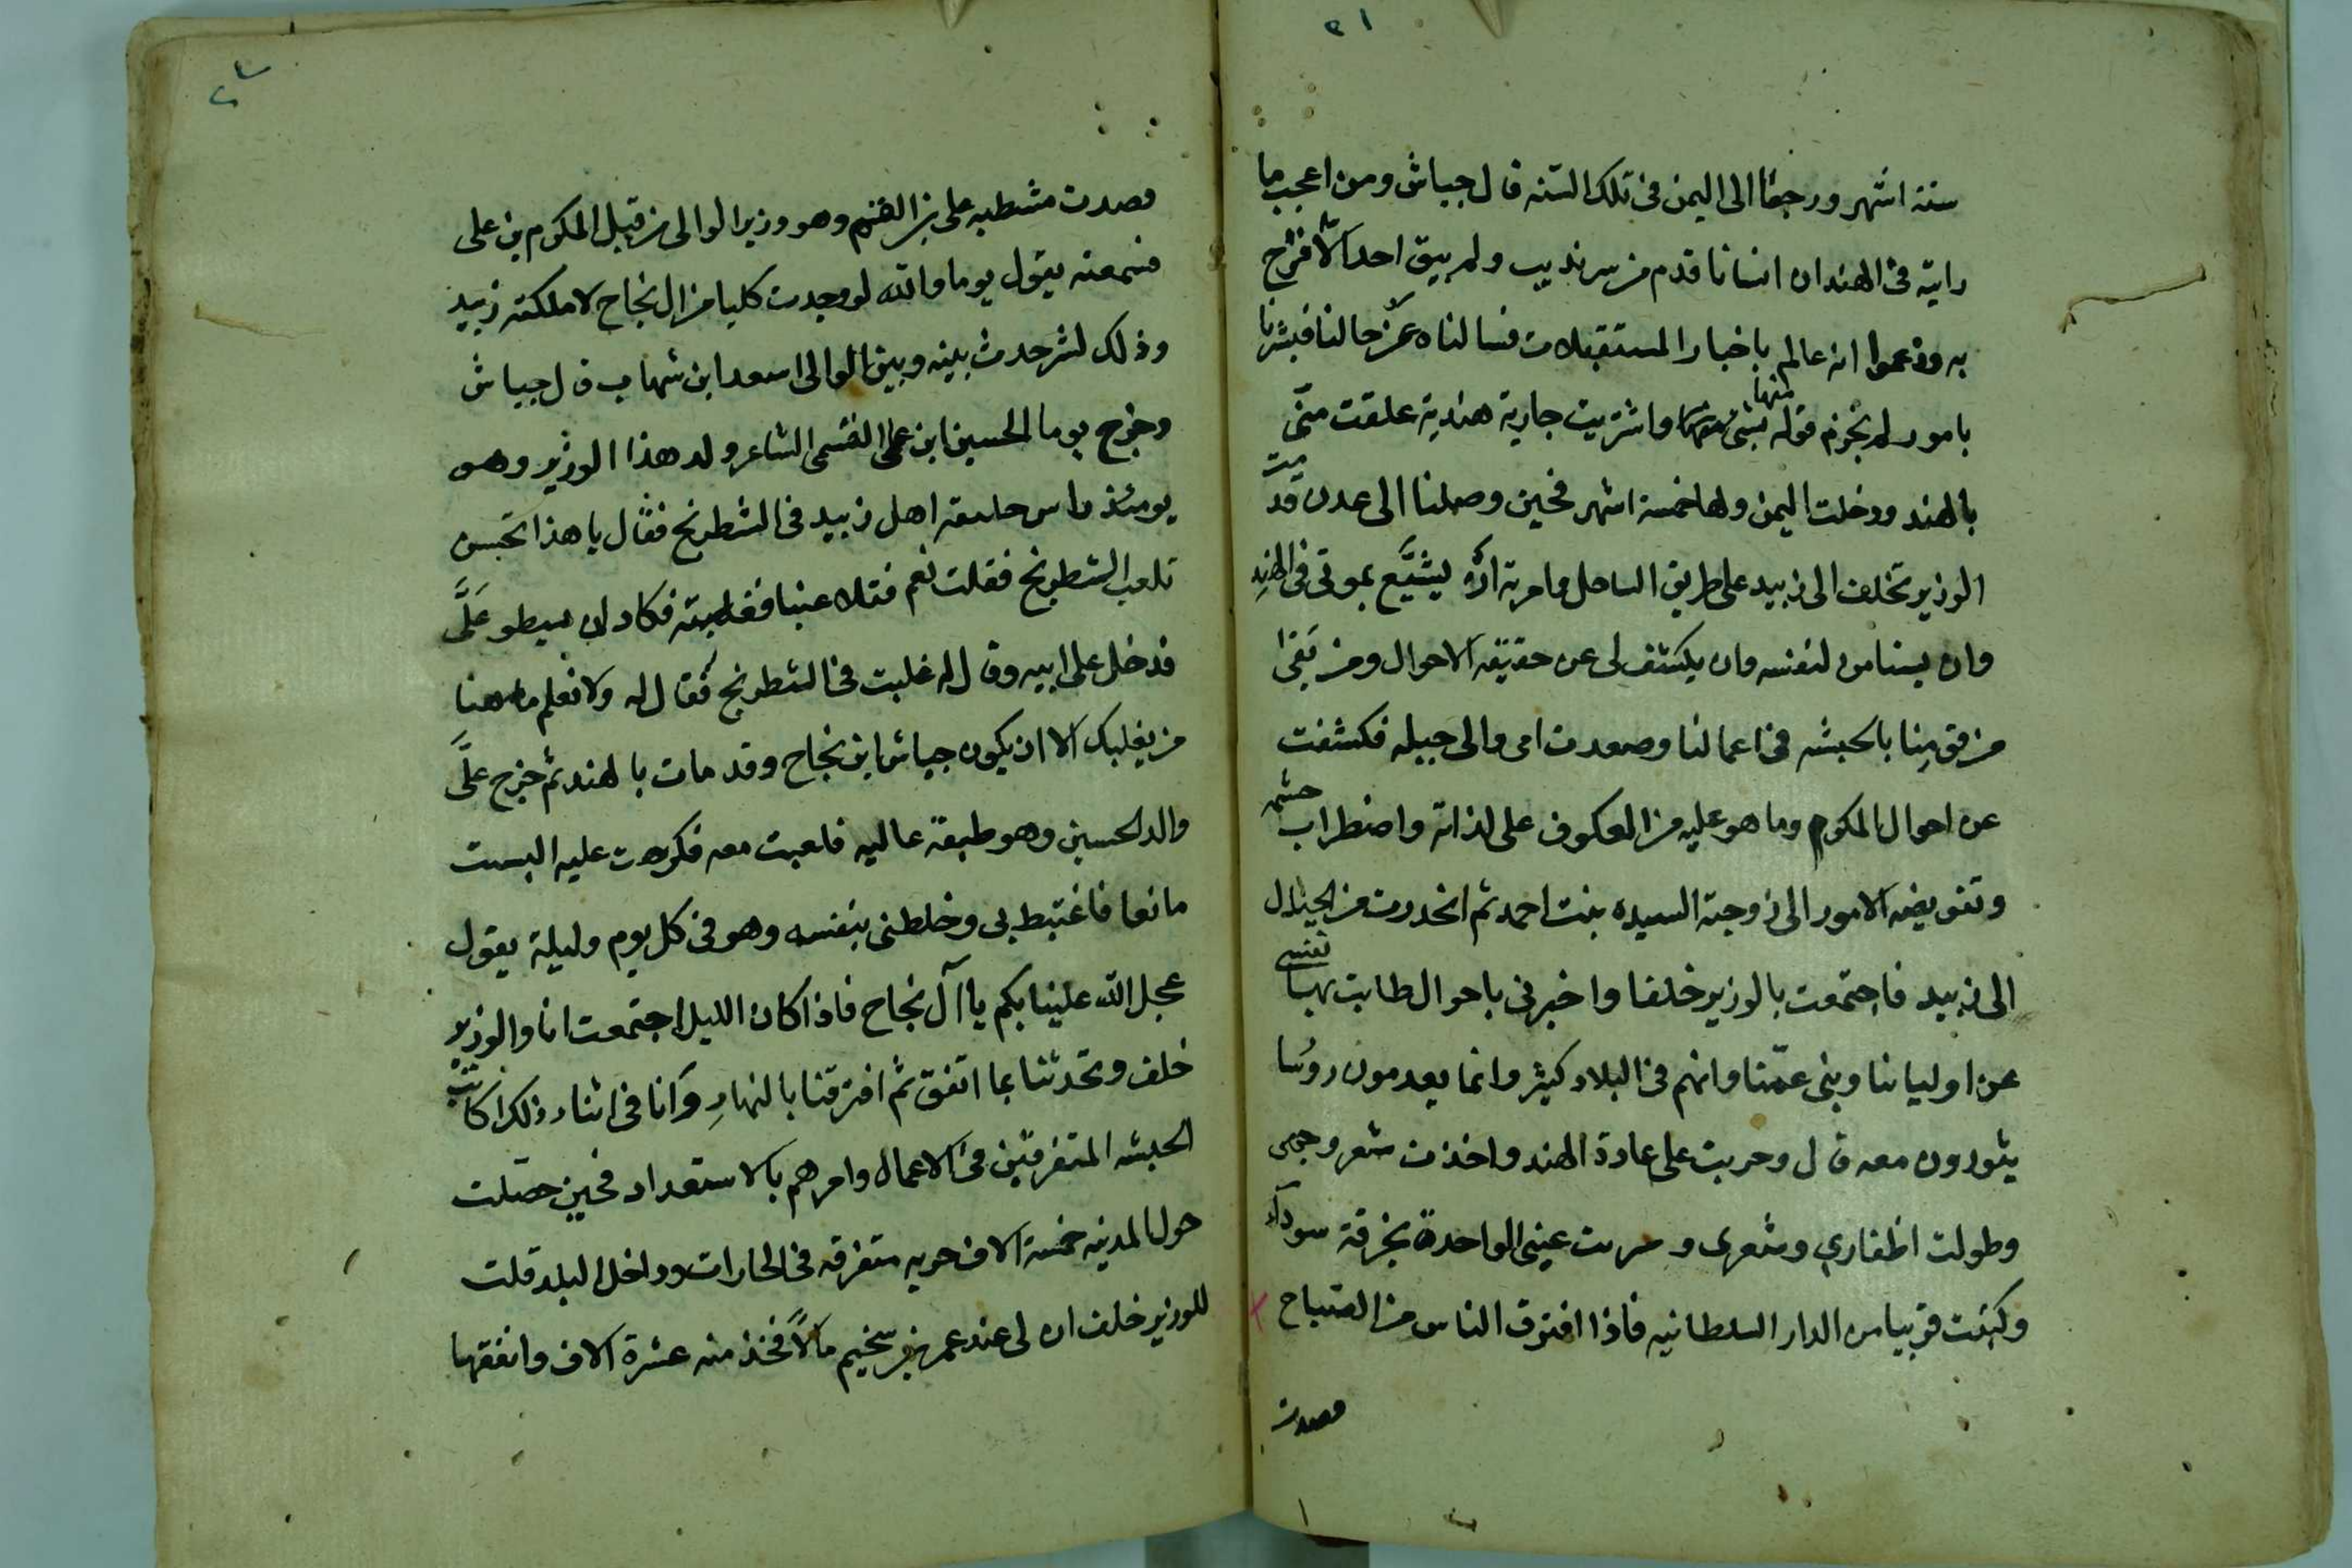 ٣١
ستة اشهر ورجعنا الى اليمن فى تلك السنه قال جياش ومن اعجب ما
رايته فى الهند ان انسانا قدم من سرنديب ولم يبق احد الا فرح
به وزعموا انه عالم باخبار المستقبلات فسالناه عن حالنا فبشرنا
بامور لم نجزم قوله بشى منها واشتريت جارية هندية علقت منى
بالهند ودخلت اليمن ولها خمسة اشهر فحين وصلنا الى عدن قدمت
الوزير تخلف الى زبيد على طريق الساحل وامرته انه يشيّع بموتى فى الهند
وان يستامن لنفسه وان يكشف لى عن حقيقه الاحوال ومن بقى
من قومنا بالحبشه فى اعمالنا وصعدت الى والى جبله فكشفت
عن احوال المكرم وما هو عليه من العكوف على لذاته واضطراب حشمه
وتفويضه الامور الى زوجته السيده بنت احمد ثم انحدرت من الجبال
الى زبيد فاجتمعت بالوزير خلفا واخبرنى باحوال طابت بها نفسى
عن اوليائنا وبنى عمّنا وانهم فى البلاد كثير وانما يعدمون روسا
يثورون معه قال وجريت على عادة الهند واخذت شعر وجهى
وطولت اظفاري وشعرى وسترت عينى الواحدة بخرقة سوداء
وكنت قريبا من الدار السلطانيه فاذا افترق الناس من الصباح
قصدت
قصدت مشطبه على بن القم وهو وزير الوالى من قبل المكرم بن على
فسمعته يقول يوما والله لو وجدت كلبا من ال نجاح لاملكته زبيد
وذلك لشر حدث بينه وبين الوالى اسعد ابن شهاب قال جياش
وخرج يوما الحسين ابن على القمى الشاعر ولد هذا الوزير وهو
يومئذ راس طبقة اهل زبيد فى الشطرنج فقال يا هذا تحسن
تلعب الشطرنج فقلت نعم فتلاعبنا فغلبته فكاد ان يسطو علَّى
فدخل على ابيه وقال له غلبت فى الشطرنج فقال له ولا نعلم ها هنا
من يغلبك الا ان يكون جياش ابن نجاح وقد مات بالهند ثم خرج علَّى
والد الحسين وهو طبقة عاليه فلعبت معه فكرهت عليه الست
مانعا فاغتبط بى وخلطنى بنفسه وهو فى كل يوم وليلة يقول
عجل الله علينا بكم يا آل نجاح فاذا كان الليل اجتمعت انا والوزير
خلف وتحدثنا بما اتفق ثم افترقنا بالنهارِ وانا فى اثناء ذلك اكاتب
الحبشه المتفرقين فى الاعمال وامرهم بالاستعداد فحين حصّلت
حول المدينه خمسة الاف حربه متفرقه فى الحارات وداخل البلد قلت
للوزير خلف ان لى عند عمر بن سخيم مالاً فخذ منه عشرة الاف وانفقها